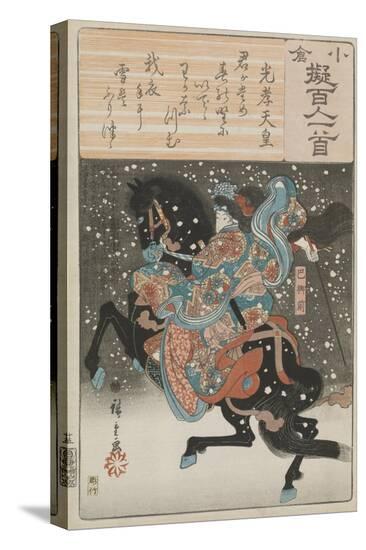 小倉
擬百人一首
光孝天皇
君が為
春の野に
いでゝ
わかなつむ
我衣手に
雪は
ふりつゝ
巴御前
廣重画
彫竹